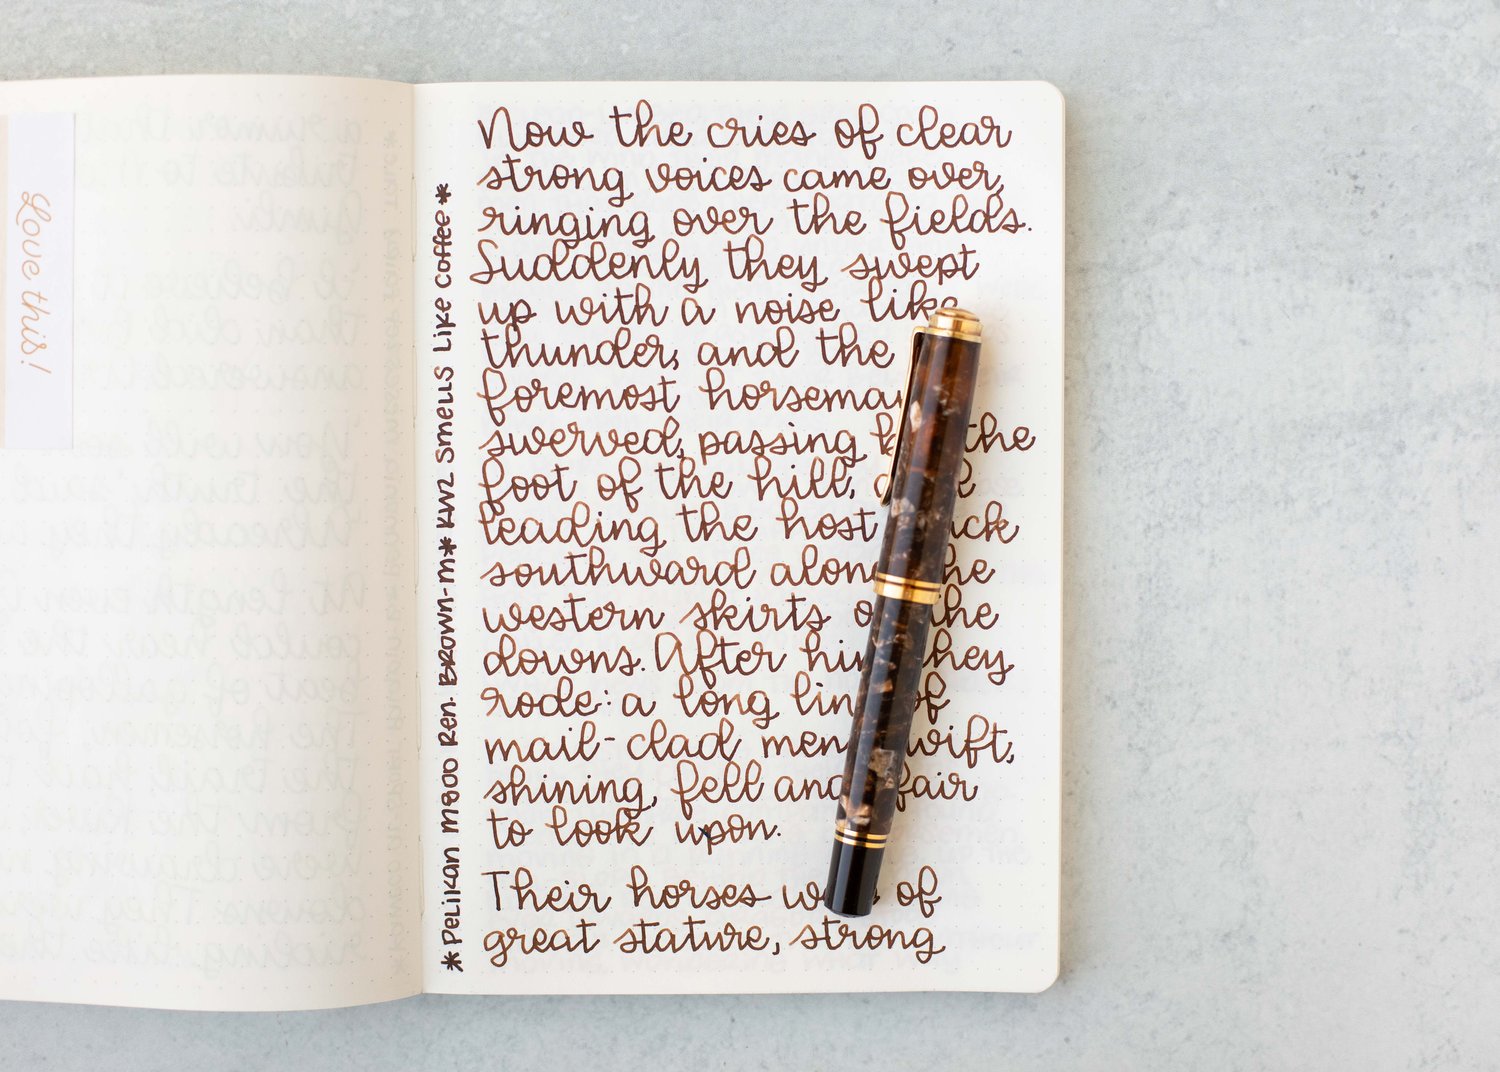 Love this!
*Pelikan M800 Ren. Brown-M* KWZ Smells Like Coffee*
Now the cries of clear
strong voices came over,
ringing over the fields.
Suddenly they swept
up with a noise like
thunder, and the
foremost horseman
swerved, passing by the
foot of the hill, and
leading the host back
southward along the
western skirts of the
downs. After him they
rode: a long line of
mail-clad men, swift,
shining, fell and fair
to look upon.
Their horses were of
great stature, strong